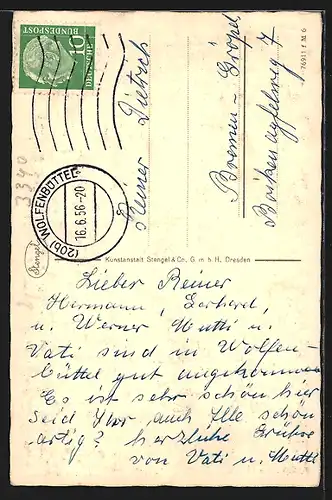 10
DEUTSCHE
BUNDESPOST
(20b) WOLFENBÜTTEL
16.6.56-20
3340
Stengel
Reiner Dietrich
Bremen-Gröpel
7
76911 f M 6
Kunstanstalt Stengel & Co., G. m. b. H., Dresden
Lieber Reiner
Hermann, Gerherd,
u. Werner Mutti u.
Vati sind in Wolfen-
büttel gut angekommen
Es ist sehr schön hier
Seid Ihr auch Alle schön
artig? herzliche Grüße
von Vati u. Mutti